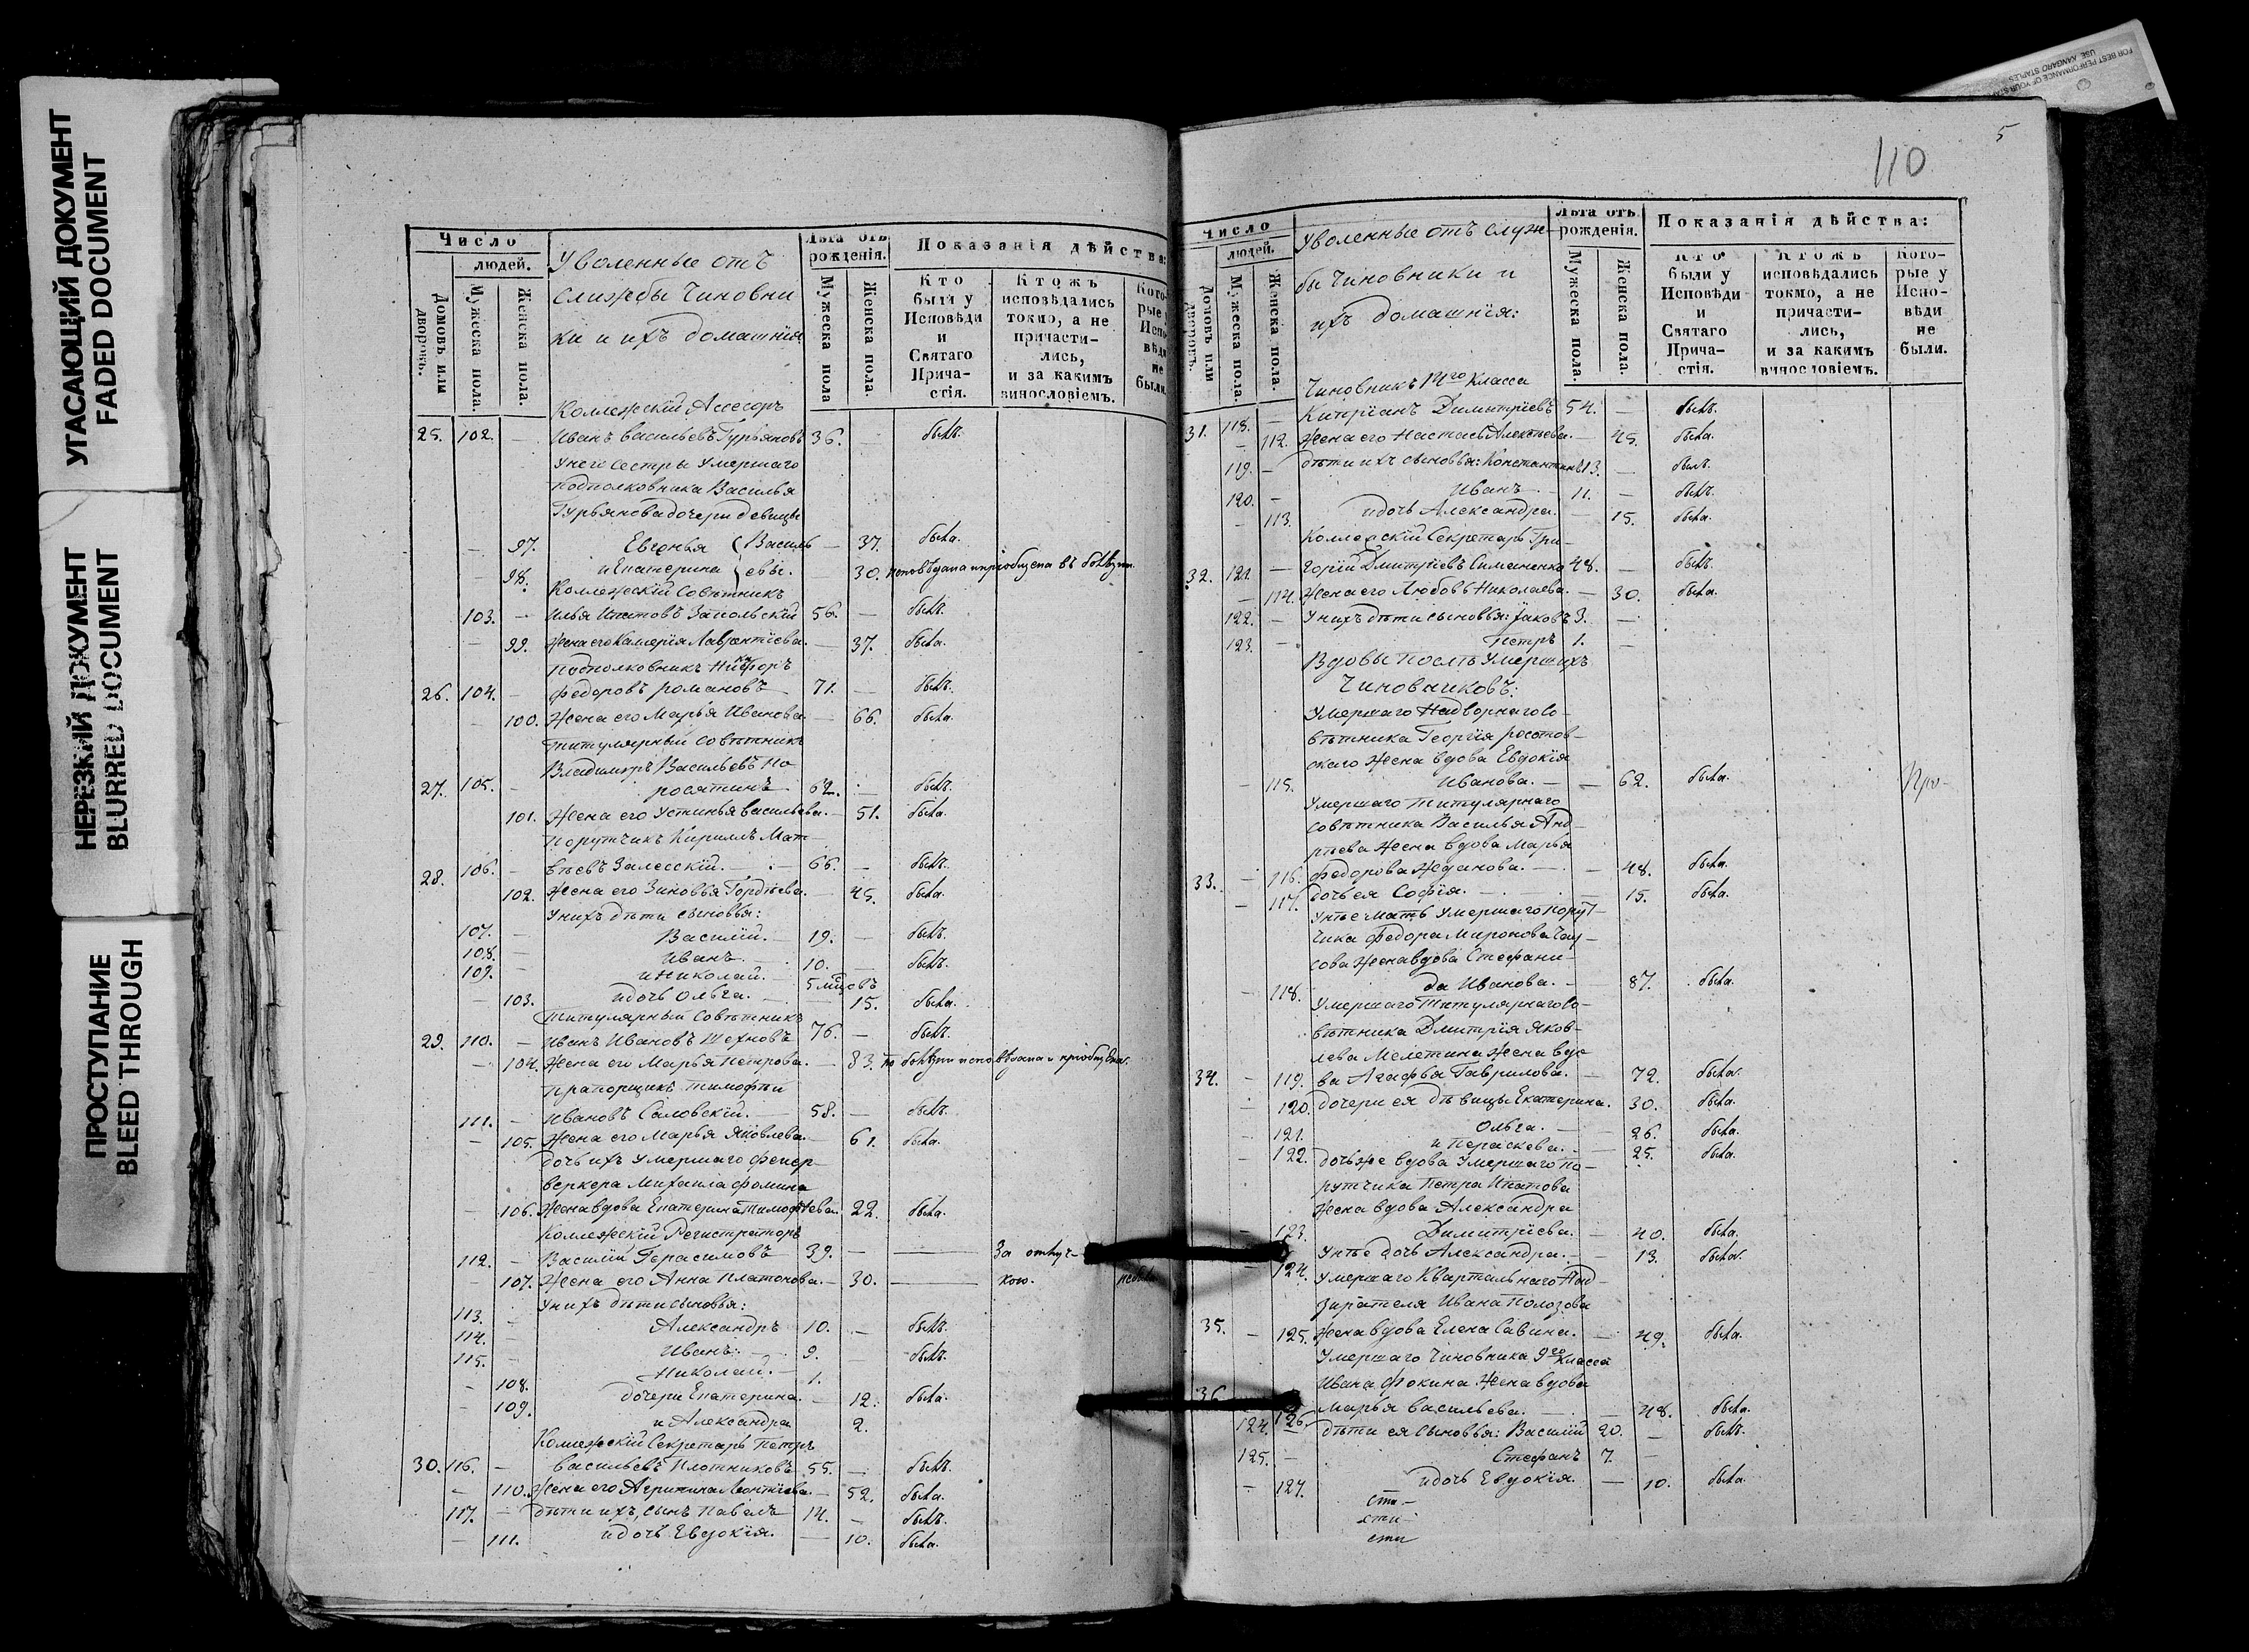 УГАСАЮЩИЙ ДОКУМЕНТ
FADED DOCUMENT
НЕРЕЗКИЙ ДОКУМЕНТ
BLURRED DOCUMENT
ПРОСТУПАНИЕ
BLEED THROUGH
FOR BEST PERFORMANCE OF YOUR STA
USE KANGARO STAPLES
Число
людей.
Домовъ или дворовъ.
Мужеска пола.
Женска пола.
Уволенные отъ
службы Чиновни
ки и ихъ домашнiя
Лѣта отъ рожденiя.
Мужеска пола
Женска пола.
Показанiя дѣйства:
Кто были у Исповѣди и Святаго Прича-стiя.
Ктожъ исповѣдались токмо, а не причасти-лись, и за какимъ винословiемъ.
Кото-рые у Испо-вѣди не были.
Коллежскiй Асесоръ
25. 102. — Иванъ Васильевъ Гурьяновъ 36. — былъ.
Унего сестры умершаго
подполковника Василья
Гурьянова дочери девицы
— 97. Евгенья (Василь — 37. была.
— 98. и Екатерина евы. 30. исповѣдана и прiобщена въ болѣзни.
Коллежскiй Совѣтникъ
103. — Илья Ипатовъ Запольскiй 56. — былъ.
— 99. Жена его Калерiя Лаврентiева. — 37. была.
подполковникъ Никифоръ
26. 104. — федоровъ романовъ 71. — былъ.
— 100. Жена его Марья Иванова — 66. была.
титулярный совѣтникъ
Владимиръ Васильевъ По
27. 105. — росятинъ 62. — былъ.
101. Жена его Устинья Васильева. — 51. была.
Порутчикъ Кирилъ Мат
28. 106. — вѣевъ Залесскiй. — 66. — былъ.
102. Жена его Зиновья Гордѣева. — 45. была.
Унихъ дѣти сыновья:
107. — Василiй. — 19. — былъ.
108. — Иванъ. — 10. — былъ.
109. — и Николай. — 5 мцовъ
— 103. и дочь Ольга. — 15. была.
Титулярный Совѣтникъ
29. 110. — Иванъ Ивановъ Шехновъ 76. — былъ.
— 104. Жена его Марья Петрова. — 83. по болѣзни исповѣдана и прiобщена.
Прапорщикъ Тимофѣй
111. — Ивановъ Саловскiй. — 58. — былъ.
— 105. Жена его Марья Яковлева. — 61. была.
дочь ихъ умершаго феиер
веркера Михаила фомина
— 106. Жена вдова Екатерина Тимофѣева. 22. была.
Коллежскiй Регистраторъ
112. — Василiй Герасимовъ 39. — — За отлуч-
— 107. Жена его Анна Платонова. — 30. — кою. небыли
Унихъ дѣти сыновья:
113. — Александръ 10. — былъ.
114. — Иванъ. — 9. — былъ.
115. — Николай. — 1.
— 108. дочери Екатерина — 12. была.
— 109. и Александра 2.
Коллежскiй Секретарь Петръ
30. 116. — Васильевъ Плотниковъ 55. — былъ.
— 110. Жена его Агрипина Леонтiева. — 52. была.
117. — дѣти ихъ, сынъ Павелъ 14. — былъ.
— 111. и дочь Евдокiя. — 10. была.
5
110
Число
людей.
Домовъ или дворовъ.
Мужеска пола.
Женска пола.
Уволенные отъ служ-
бы Чиновники и
ихъ домашнiя:
Лѣта отъ рожденiя.
Мужеска пола.
Женска пола.
Показанiя дѣйства:
Кто были у Исповѣди и Святаго Прича-стiя.
Ктожъ исповѣдались токмо, а не причасти-лись, и за какимъ винословiемъ.
Кото-рые у Испо-вѣди не были.
Чиновникъ 14го Класса
31. 118. — Кипрiанъ Димитрiевъ 54. — былъ.
— 112. Жена его Настасья Алексѣева. — 45. была.
119. — дѣти ихъ сыновья: Константинъ 13. — былъ.
120. — Иванъ — 11. — былъ.
— 113. и дочь Александра. — 15. была.
Коллежскiй Секретарь Гри-
32. 121. — горiй Дмитрiевъ Симаненко 48. — былъ.
— 114. Жена его Любовь Николаева. — 30. была.
122. — Унихъ дѣти сыновья: Iаковъ 3. —
123. — Петръ 1. —
Вдовы послѣ умершихъ
Чиновниковъ:
Умершаго Надворнаго Со-
вѣтника Георгiя ростов-
скаго Жена вдова Евдокiя
— 115. Иванова. — — 62. была.
Умершаго Титулярнаго
совѣтника Василья Анд-
рѣева Жена вдова Марья
33. — 116. федорова Жданова. — — 48. была.
— 117. дочь ея Софiя. — — 15. была.
Унѣе мать умершаго порут-
чика федора Миронова Чау-
сова Жена вдова Стефани-
— 118. да Иванова. — 87. была.
Умершаго Титулярнаго Со-
вѣтника Дмитрiя Яков-
лева Мелетина Жена вдо
34. — 119. ва Агафья Гаврилова. — 72. была.
— 120. дочери ея дѣвицы Екатерина. 30. была.
— 121. Ольга. — — 26. была.
— 122. и Пераскева. — 25. была.
дочь же вдова умершаго по-
рутчика Петра Ипатова
Жена вдова Александра
— 123. Димитрiева. — 40. была.
— 124. Унѣе дочь Александра. — 13. была.
Умершаго Квартальнаго Над-
зирателя Ивана Полозова
35. — 125. Жена вдова Елена Савина. — 49. была.
Умершаго Чиновника 9го Класса
Ивана фокина Жена вдова
36. 126. Марья Васильева. — — 48. была.
124. дѣти ея сыновья: Василiй 20. — былъ.
125. — Стефанъ 7.
— 127. и дочь Евдокiя. — 10. была.